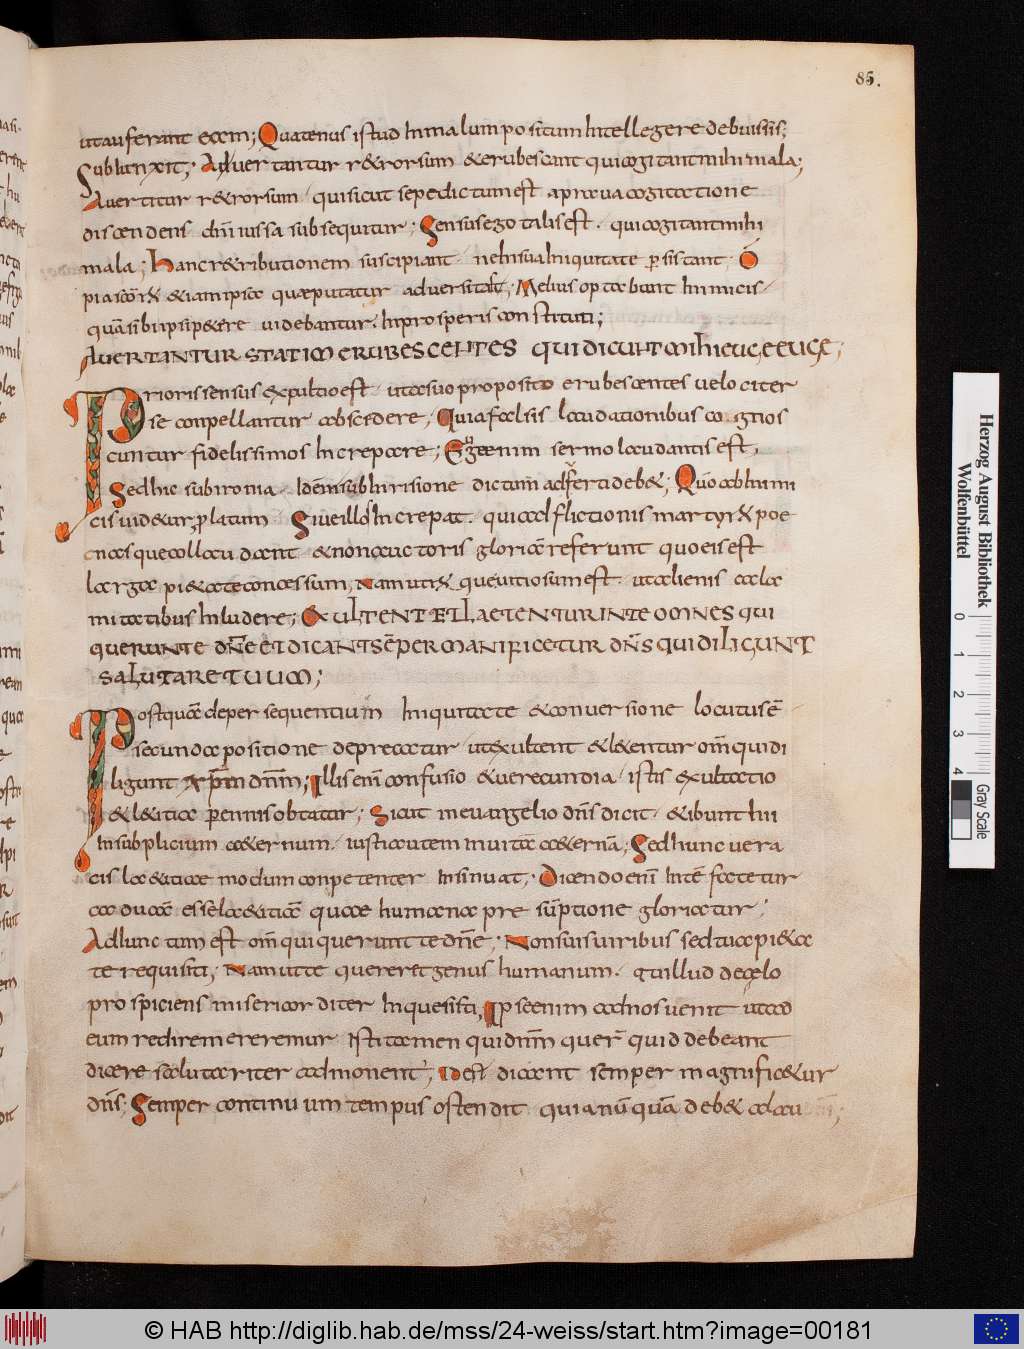 85.
ut auferant eam; Quatenus istud In malum positum Intellegere debuissis;
Subiunxit; Advertantur r&rorsum &erubescant qui cogitant mihi mala;
Avertitur r&rorsum quisicut sepe dictum est aprava cogitatione
discendens dn̄i iussa subsequitur; Sensus ergo talis est. qui cogitant mihi
mala; hanc r&ributionem suscipiant ne In sua Iniquitate persistant; O
quā sibi ipsi p&ere videbantur. In prosperis constituti;
AVERTANTUR STATIM ERUBESCENTES QUI DICUNT MIHI EUGE EUGE;
Prioris sensus exp&itio est ut a suo proposito erubescentes velociter
se conpellantur abscedere; Quia falsis laudationibus co gnos
cuntur fidelissimos Increpare; Ergo enim sermo laudantis est,
Sed hic sub ironia Idēm sub Inrisione dictum adverti deb&; Quō ab Inimi
cis vid&ur platum Sive illos Increpat. qui adflictionis martyrū poe
nas que conlaudant &non auctoris gloriā referunt quo eis est
larga pi&ate concessum, Nam utrū que vitiosum est. ut alienis cala
mitatibus Inludere; EXULTENT ET LAETENTUR IN TE OMNES QUI
QUERUNT TE DN̄E ET DICANT SĒPER MANIFICETUR DN̄S QUI DILIGUNT
SALUTARE TUUM;
Postquā de persequentium Iniquitate &conversione locutus ē
secunda positione deprecatur ut exultent &l&entur om̄ qui di
ligunt xp̄m dn̄m; Illis enī confusio &verecundia istis exultatio
&l&itia perennis obtatur; Sicut In evangelio dn̄s dicit &ibunt hii
In subplicium a&ernum. iusti autem In vitā a&ernā; Sed hunc vera
cis la&itiae modum conpetenter Insinuat; Dicendo enī In te fatetur
caducā esse la&itiā quae humana presūptione gloriatur;
Adiunctum est om̄ qui querunt te dn̄e; Non suis viribus sed tua pi&a
te requisiti; Nam ut te querer& genus humanum. tu illud de caelo
prospiciens misericorditer Inquesisti, Ipse enim ad nos venit ut ad
eum redire mereremur Isti tamen qui dn̄m quer̄ quid debeant
dicere salutariter admonent; Id est dicant semper magnific&ur
dn̄s; Semper continuum tempus ostendit quia nū quā deb& a lau
Herzog August Bibliothek
Wolfenbüttel
0 1 2 3 4
Gray Scale
© HAB http://diglib.hab.de/mss/24-weiss/start.htm?image=00181